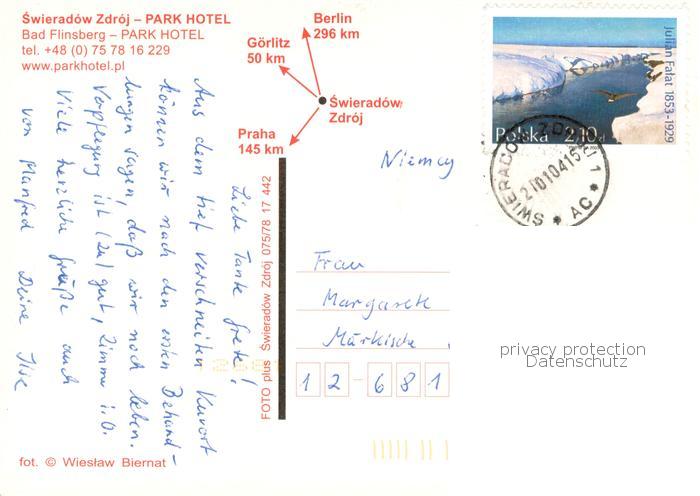 Świeradów Zdrój – PARK HOTEL
Bad Flinsberg – PARK HOTEL
tel. +48 (0) 75 78 16 229
www.parkhotel.pl
Berlin
296 km
Görlitz
50 km
Świeradów
Zdrój
Praha
145 km
Liebe Tante Grete!
Aus dem tief verschneiten Kurort
können wir nach den ersten Behand-
lungen sagen, daß wir noch leben.
Verpflegung ist (zu) gut, Zimmer i.O.
Viele herzliche Grüße auch
von Manfred Deine Ilse
fot. © Wiesław Biernat
FOTO plus Świeradów Zdrój 075/78 17 442
Niemcy
Frau
Margarete
Märkische
12-681
Julian Fałat 1853-1929
Polska 2,10 zł
ŚWIERADÓW ZDRÓJ 1
AC
privacy protection
Datenschutz